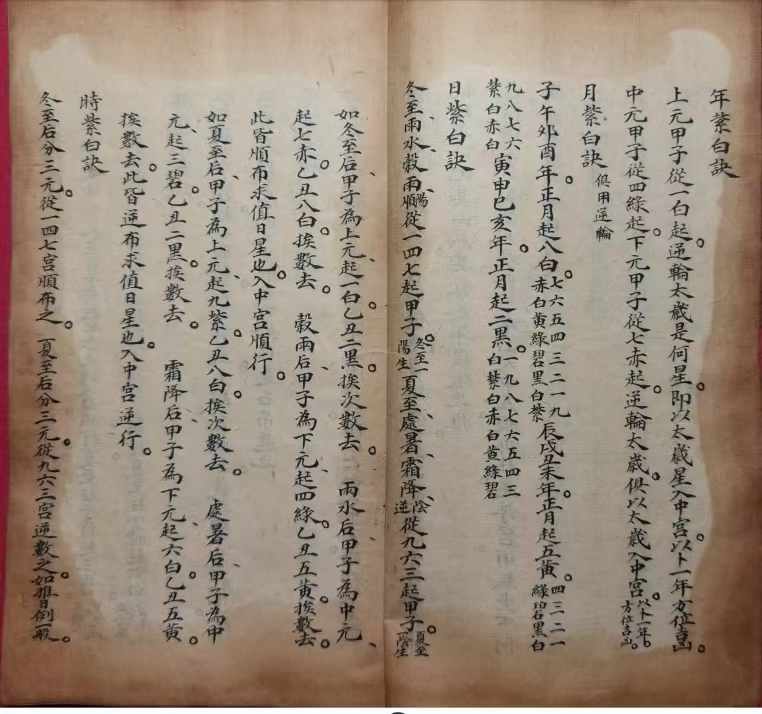 年紫白訣
上元甲子從一白起。逆輪太歲是何星。即以太歲星入中宮。以卜一年方位吉凶。
中元甲子從四綠起。下元甲子從七赤起。逆輪太歲。俱以太歲入中宮。以卜一年。方位吉凶。
月紫白訣 俱用逆輪
子午卯酉年正月起八白。七六五四三二一九 赤白黃綠碧黑白紫 辰戌丑未年正月起五黃。四三二一 綠碧黑白
九八七六 紫白赤白 寅申巳亥年。正月起二黑。一九八七六五四三 白紫白赤白黃綠碧
日紫白訣
冬至、雨水、穀雨、陽順從一四七起甲子。冬至一陽生 夏至、處暑、霜降、陰逆從九六三起甲子。夏至一陰生
如冬至后、甲子為上元、起一白。乙丑二黑。挨次數去。 雨水后甲子為中元、
起七赤。乙丑八白。挨數去。 穀雨后甲子為下元、起四綠、乙丑五黃。挨數去。
此皆順布求值日星也。入中宮順行。
如夏至后甲子為上元起九紫、乙丑八白。挨次數去。 處暑后、甲子為中
元、起三碧。乙丑二黑。挨數去。 霜降后、甲子為下元。起六白。乙丑五黃
挨數去。此皆逆布求值日星也。入中宮逆行。
時紫白訣
冬至后分三元。從一四七宮順布之。 夏至后分三元。從九六三宮逆數之。如推日倒一般。